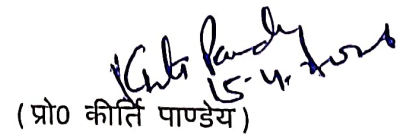 Kirti Pandey
15.4.2026
(प्रो0 कीर्ति पाण्डेय)